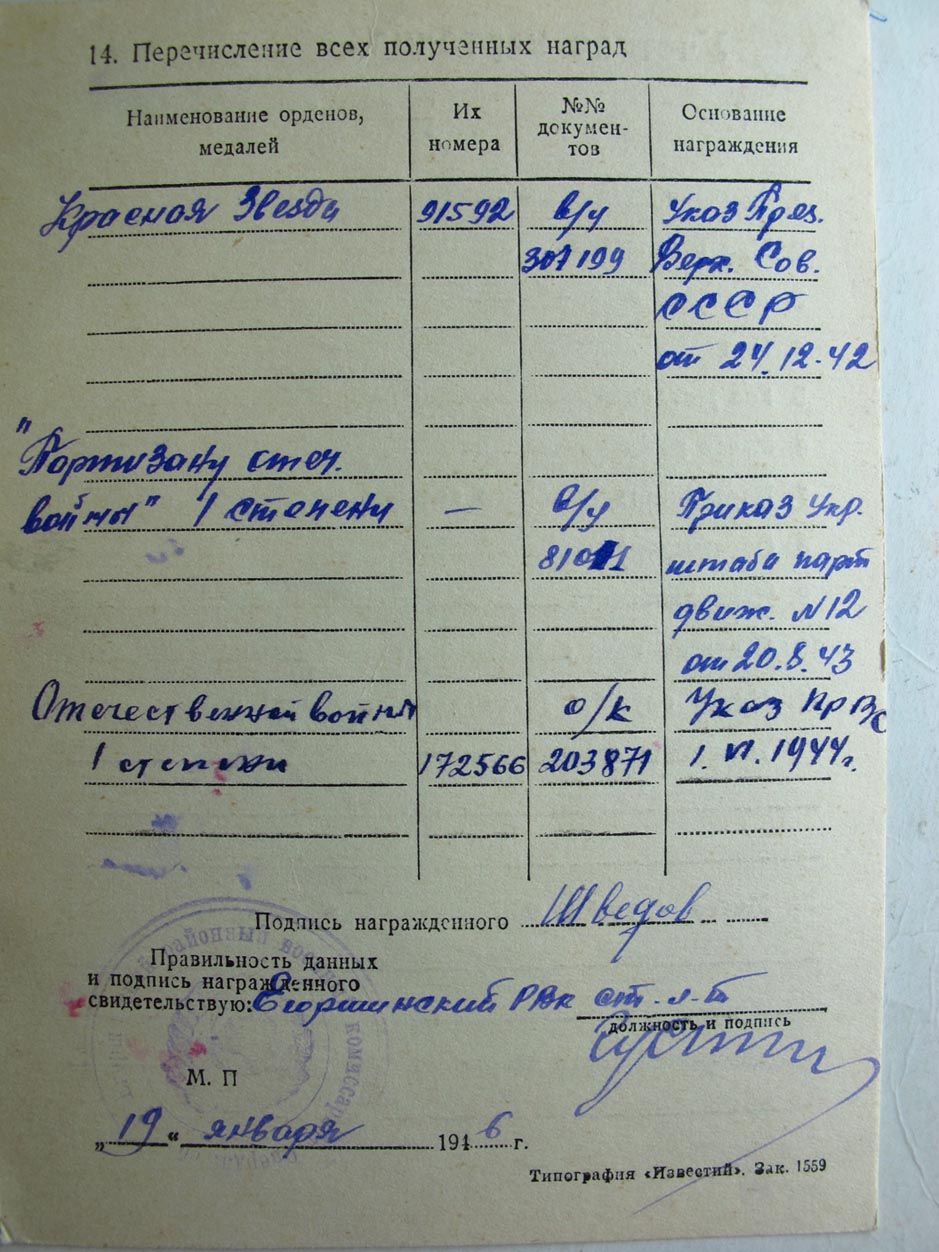 14. Перечисление всех полученных наград
Наименование орденов, медалей
Их номера
№№ докумен-тов
Основание награждения
Красная Звезда 91592 в/у Указ През.
307199 Верх. Сов.
СССР
от 24.12.42
"Партизану отеч.
войны" I степени — в/у Приказ Укр.
81011 штаба парт
движ. N12
от 20.8.43
Отечественной войны о/к Указ ПрВС
I степени 172566 203871 1.VI.1944г.
Подпись награжденного Шведов
Правильность данных
и подпись награжденного
свидетельствую: Егоршинский РВК ст. л-т
должность и подпись
М. П
„19“ января 1946 г.
Типография «Известий». Зак. 1559